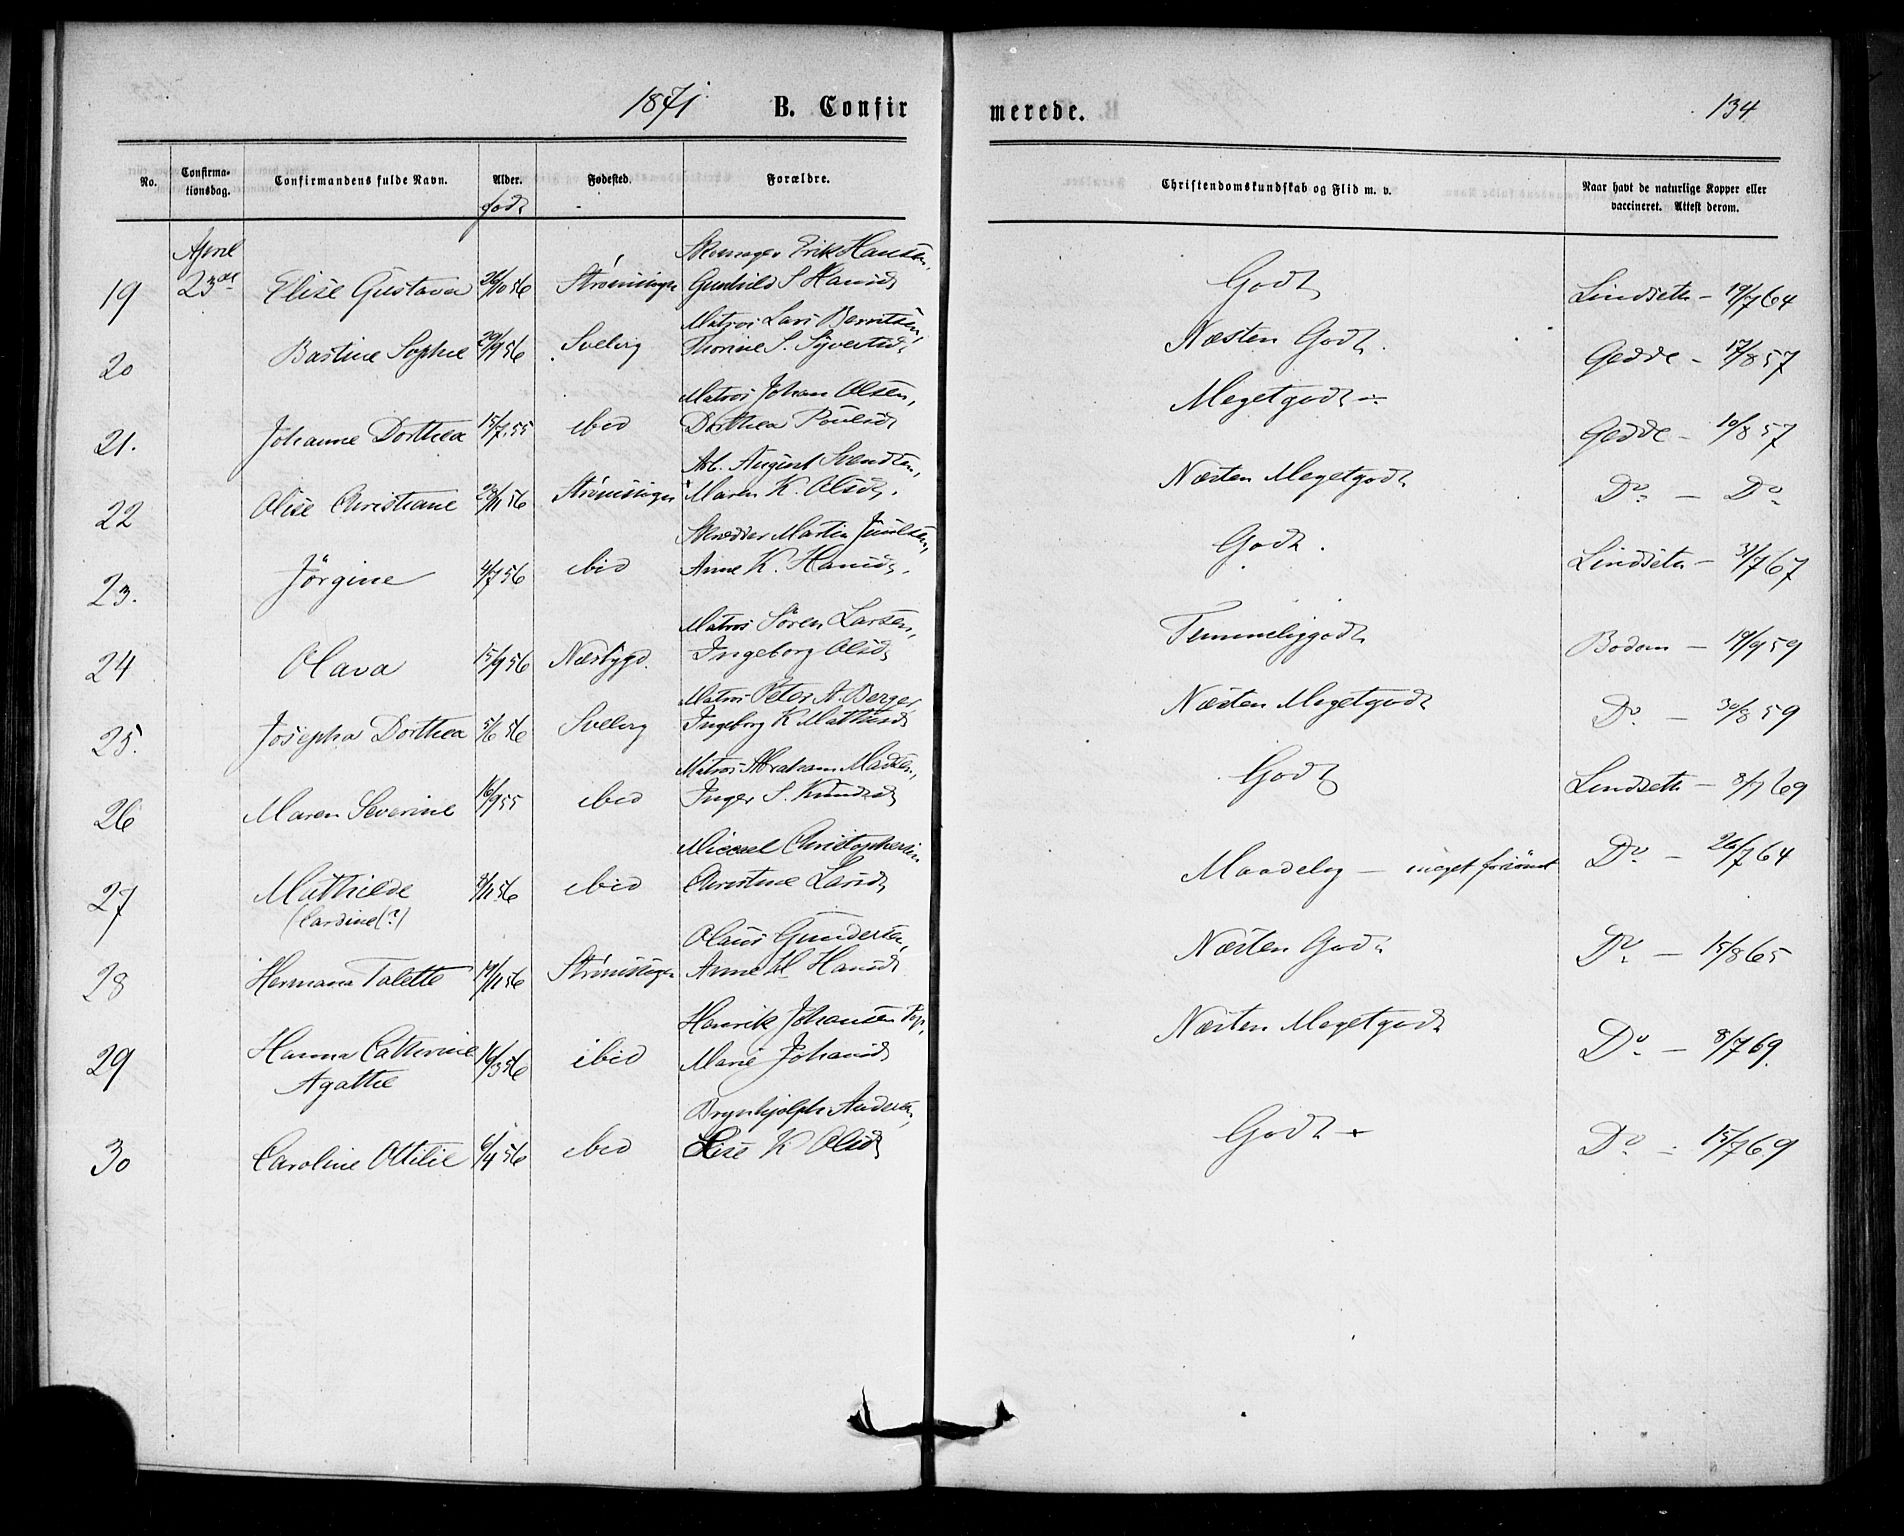 1871. B. Confirmerede. 134
No. Confirmationsdag. Confirmandens fulde Navn. Alder. Fødested. Forældre. Christendomskundskab og Flid m. v. Naar havt de naturlige Kopper eller vaccineret. Attest derom.
født
April Erik Hansen,
19 23de Elise Gustava 26/10 56 Gunhild S Hansd Godt Lindseth - 19/7 64
Matros Lars Berntsen,
20 Bastine Sophie 29/9 56 Svelvig Thorine S. Syvertsd. Næsten Godt. Gedde - 17/8 57
Matros Johan Olsen,
21. Johanne Dorthea 15/7 55 ibid Dorthea Poulsd Megetgodt Gedde - 10/8 57
Arb. August Svendsen,
22 Olise Christiane 28/11 56 Maren K. Olsd. Næsten Megetgodt Do - Do
Skrædder Martin Juulsen,
23. Jörgine 4/7 56 ibid Anne K. Hansd. Godt. Lindseth - 31/7 67
Matros Sören Larsen,
24 Olava 15/9 56 Næsbygd. Ingeborg Olsd Temmeliggodt Bodom - 19/9 59
Matros Peter A. Berger,
25. Josepha Dorthea 5/6 56 Svelvig Ingeborg K Mathisd Næsten Megetgodt Do - 30/8 59
Matros Abraham Madsen,
26 Maren Severine 16/9 55 ibid Inger S. Knudsd Godt Lindseth - 8/7 69
Michael Christophersen
27 Mathilde 8/11 56 ibid Christine Larsd Maadelig - meget forsömt Do - 26/7 64
(Cardine(?)
Olaus Gundersen,
28 Hermana Talette 19/11 56 Anne M Hansd Næsten Godt Do - 15/8 65
Henrik Johansen
29 Hanna Cathrine 16/3 56 ibid Marie Johansd Næsten Megetgodt Do - 8/7 69.
Agathe
Brynhjolph Andersen,
30 Caroline Ottilie 6/4 56 ibid Lise K Olsd Godt Do - 15/7 69